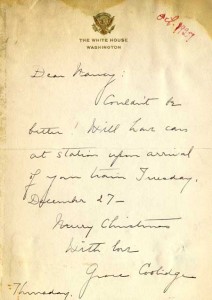 THE WHITE HOUSE
WASHINGTON
Dear
Couldn't be
better! Will have car
at station upon arrival
of your train Tuesday,
December 27—
Merry Christmas
With love
Grace Coolidge
Thursday.